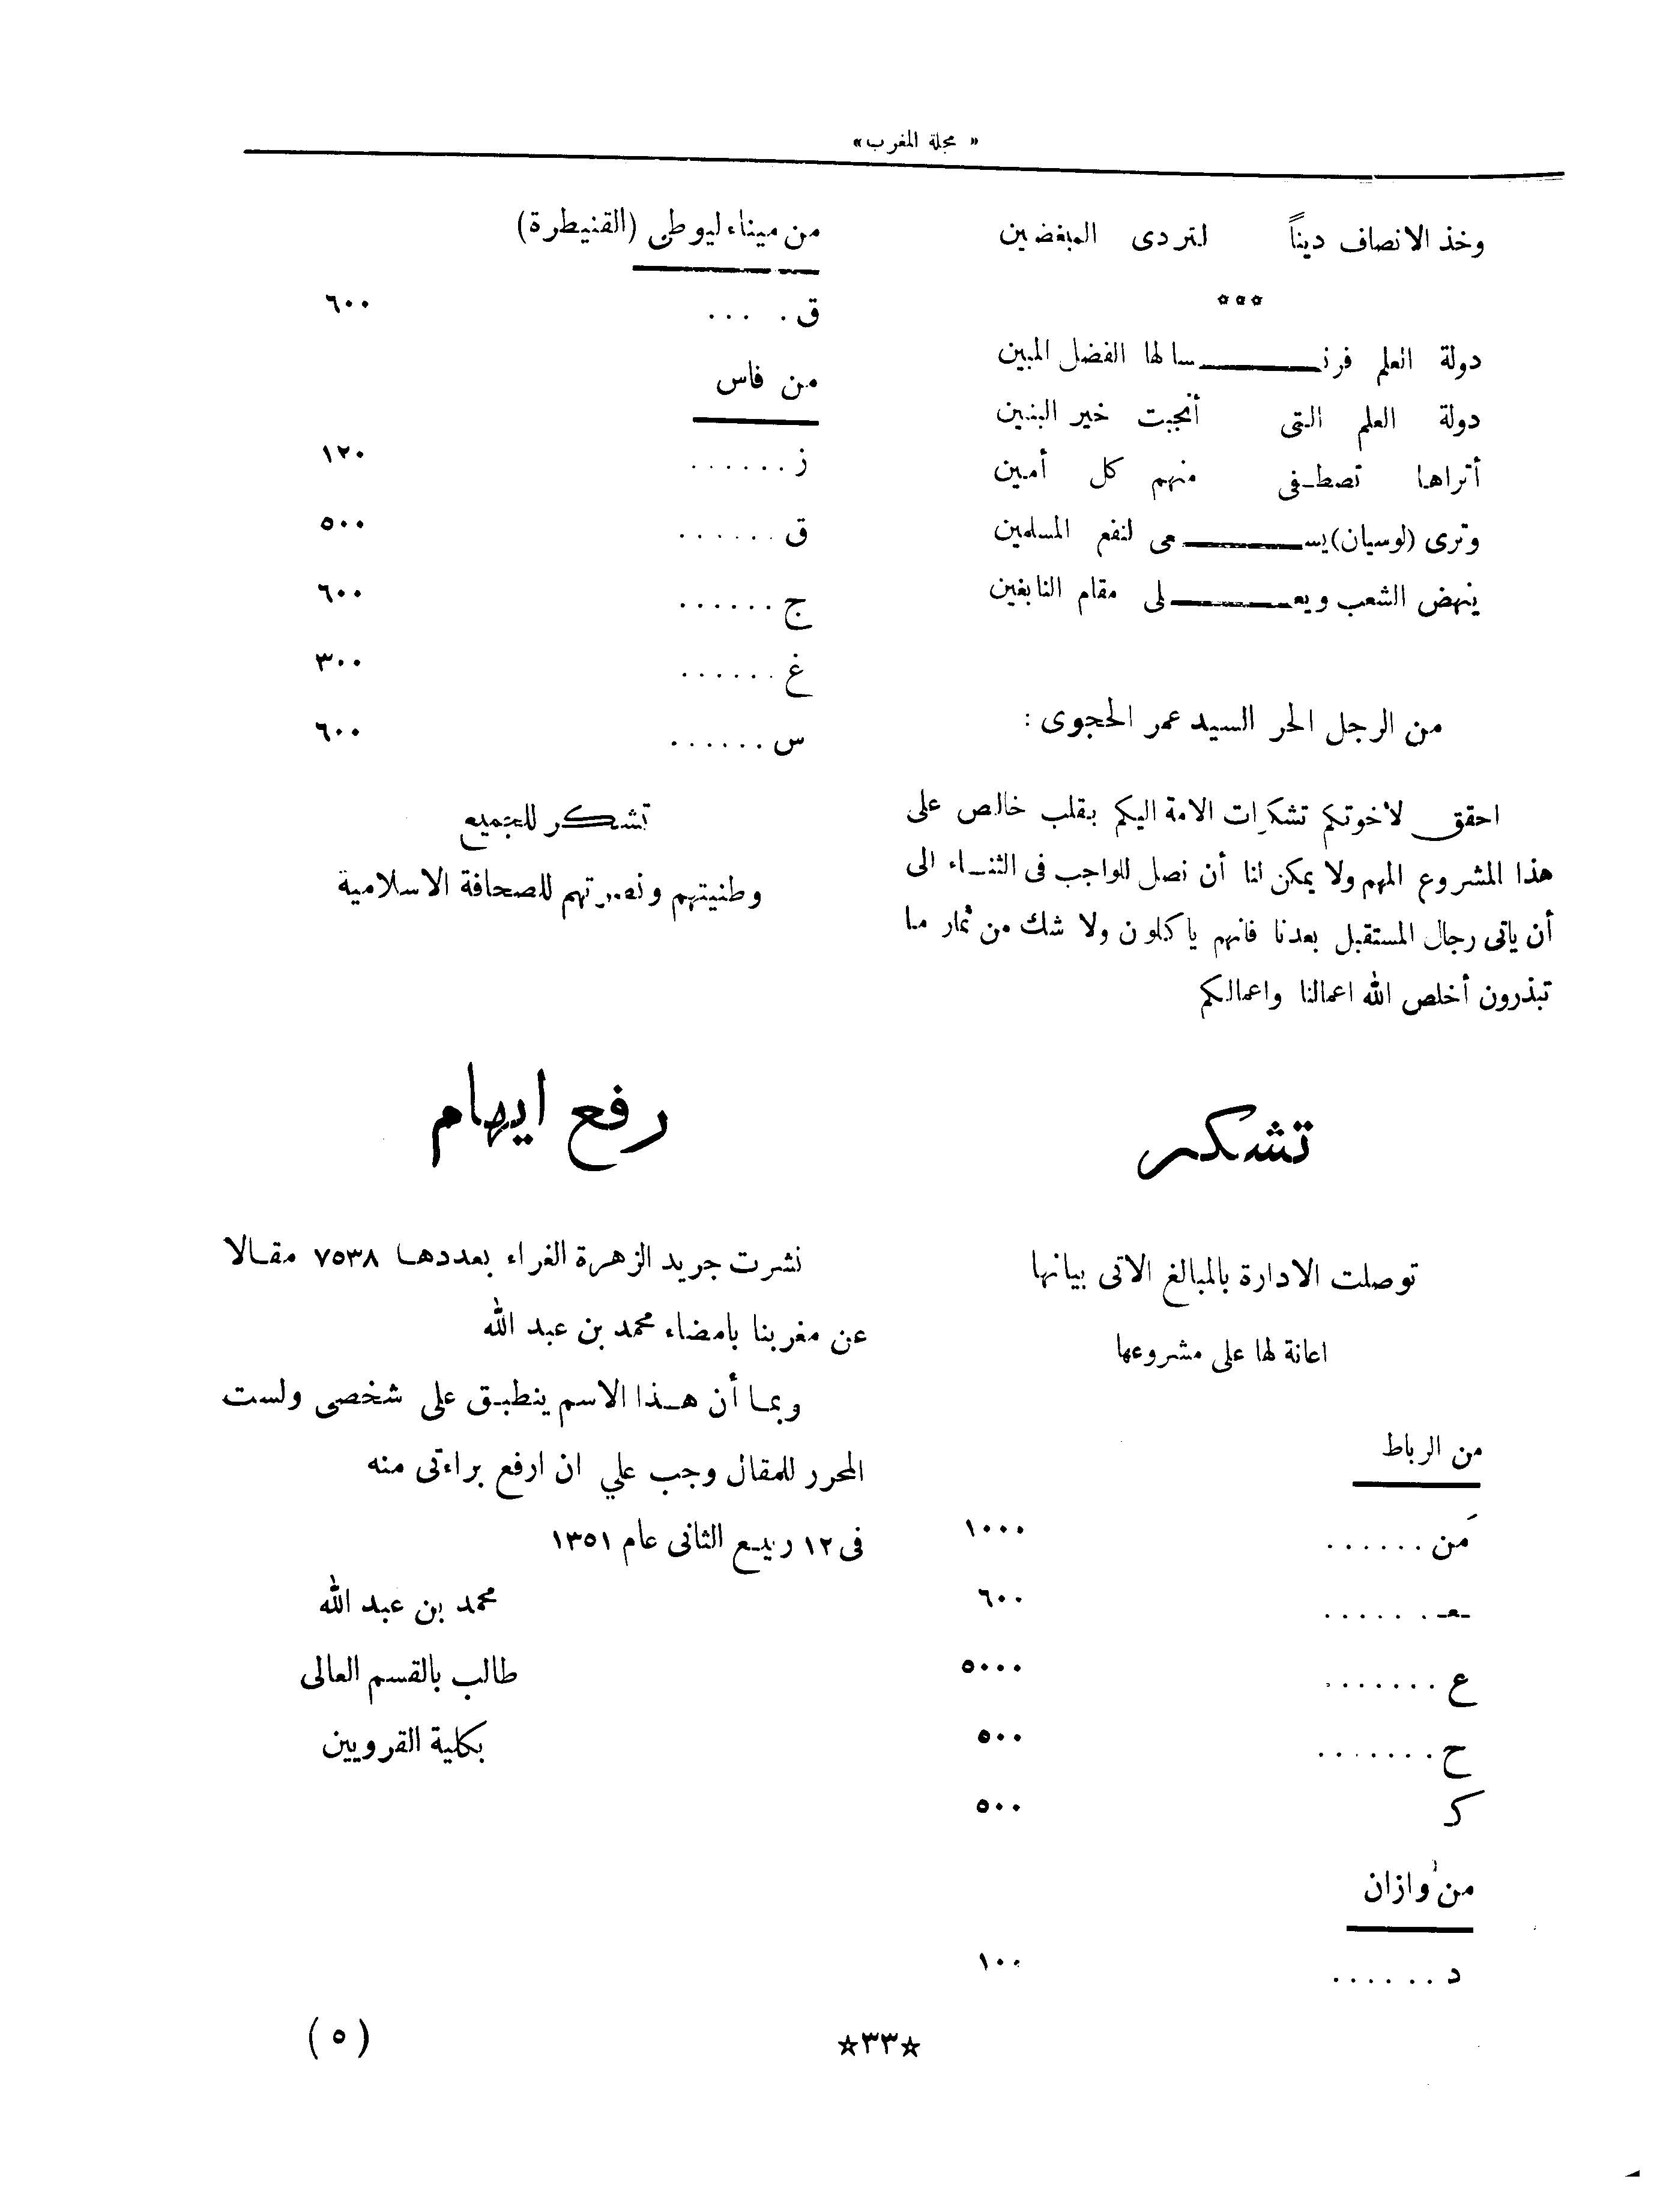 « مجلة المغرب»
وخذ الانصاف ديناً لتردى المبغضين
***
دولة العلم فرنـــــسا لها الفضل المبين
دولة العلم التى أنجبت خير البنين
أتراها تصطـفى منهم كل أمين
وترى (لوسيان) يســـــعى لنفع المسلمين
ينهض الشعب ويعـــــلى مقام النابغين
من الرجل الحر السيد عمر الحجوى :
احقق لأخوتكم تشكرات الامة اليكم بقلب خالص على
هذا المشروع المهم ولا يمكن لنا أن نصل للواجب فى الثنـاء الى
أن ياتى رجال المستقبل بعدنا فانهم ياكلون ولا شك من ثمار ما
تبذرون أخلص الله اعمالنا واعمالكم
تشكر
توصلت الادارة بالمبالغ الاتى بيانها
اعانة لها على مشروعها
من الرباط
من ...... ١٠٠٠
ـعـ ...... ٦٠٠
ع ....... ٥٠٠٠
ح ....... ٥٠٠
كـ ٥٠٠
من وازان
د ...... ١٠٠
من ميناء ليوطى (القنيطرة)
ق . ... ٦٠٠
من فاس
ز ...... ١٢٠
ق ...... ٥٠٠
ج ...... ٦٠٠
غ ...... ٣٠٠
س ...... ٦٠٠
تشكر للجميع
وطنيتهم ونصرتهم للصحافة الاسلامية
رفع ايهام
نشرت جريد الزهرة الغراء بعددها ٧٥٣٨ مقـالا
عن مغربنا بامضاء محمد بن عبد الله
وبمـا أن هـذا الاسم ينطبـق على شخصى ولست
المحرر للمقال وجب علي ان ارفع براءتى منه
فى ١٢ ربيـع الثانى عام ١٣٥١
محمد بن عبد الله
طالب بالقسم العالى
بكلية القرويين
☆٣٣☆
(٥)